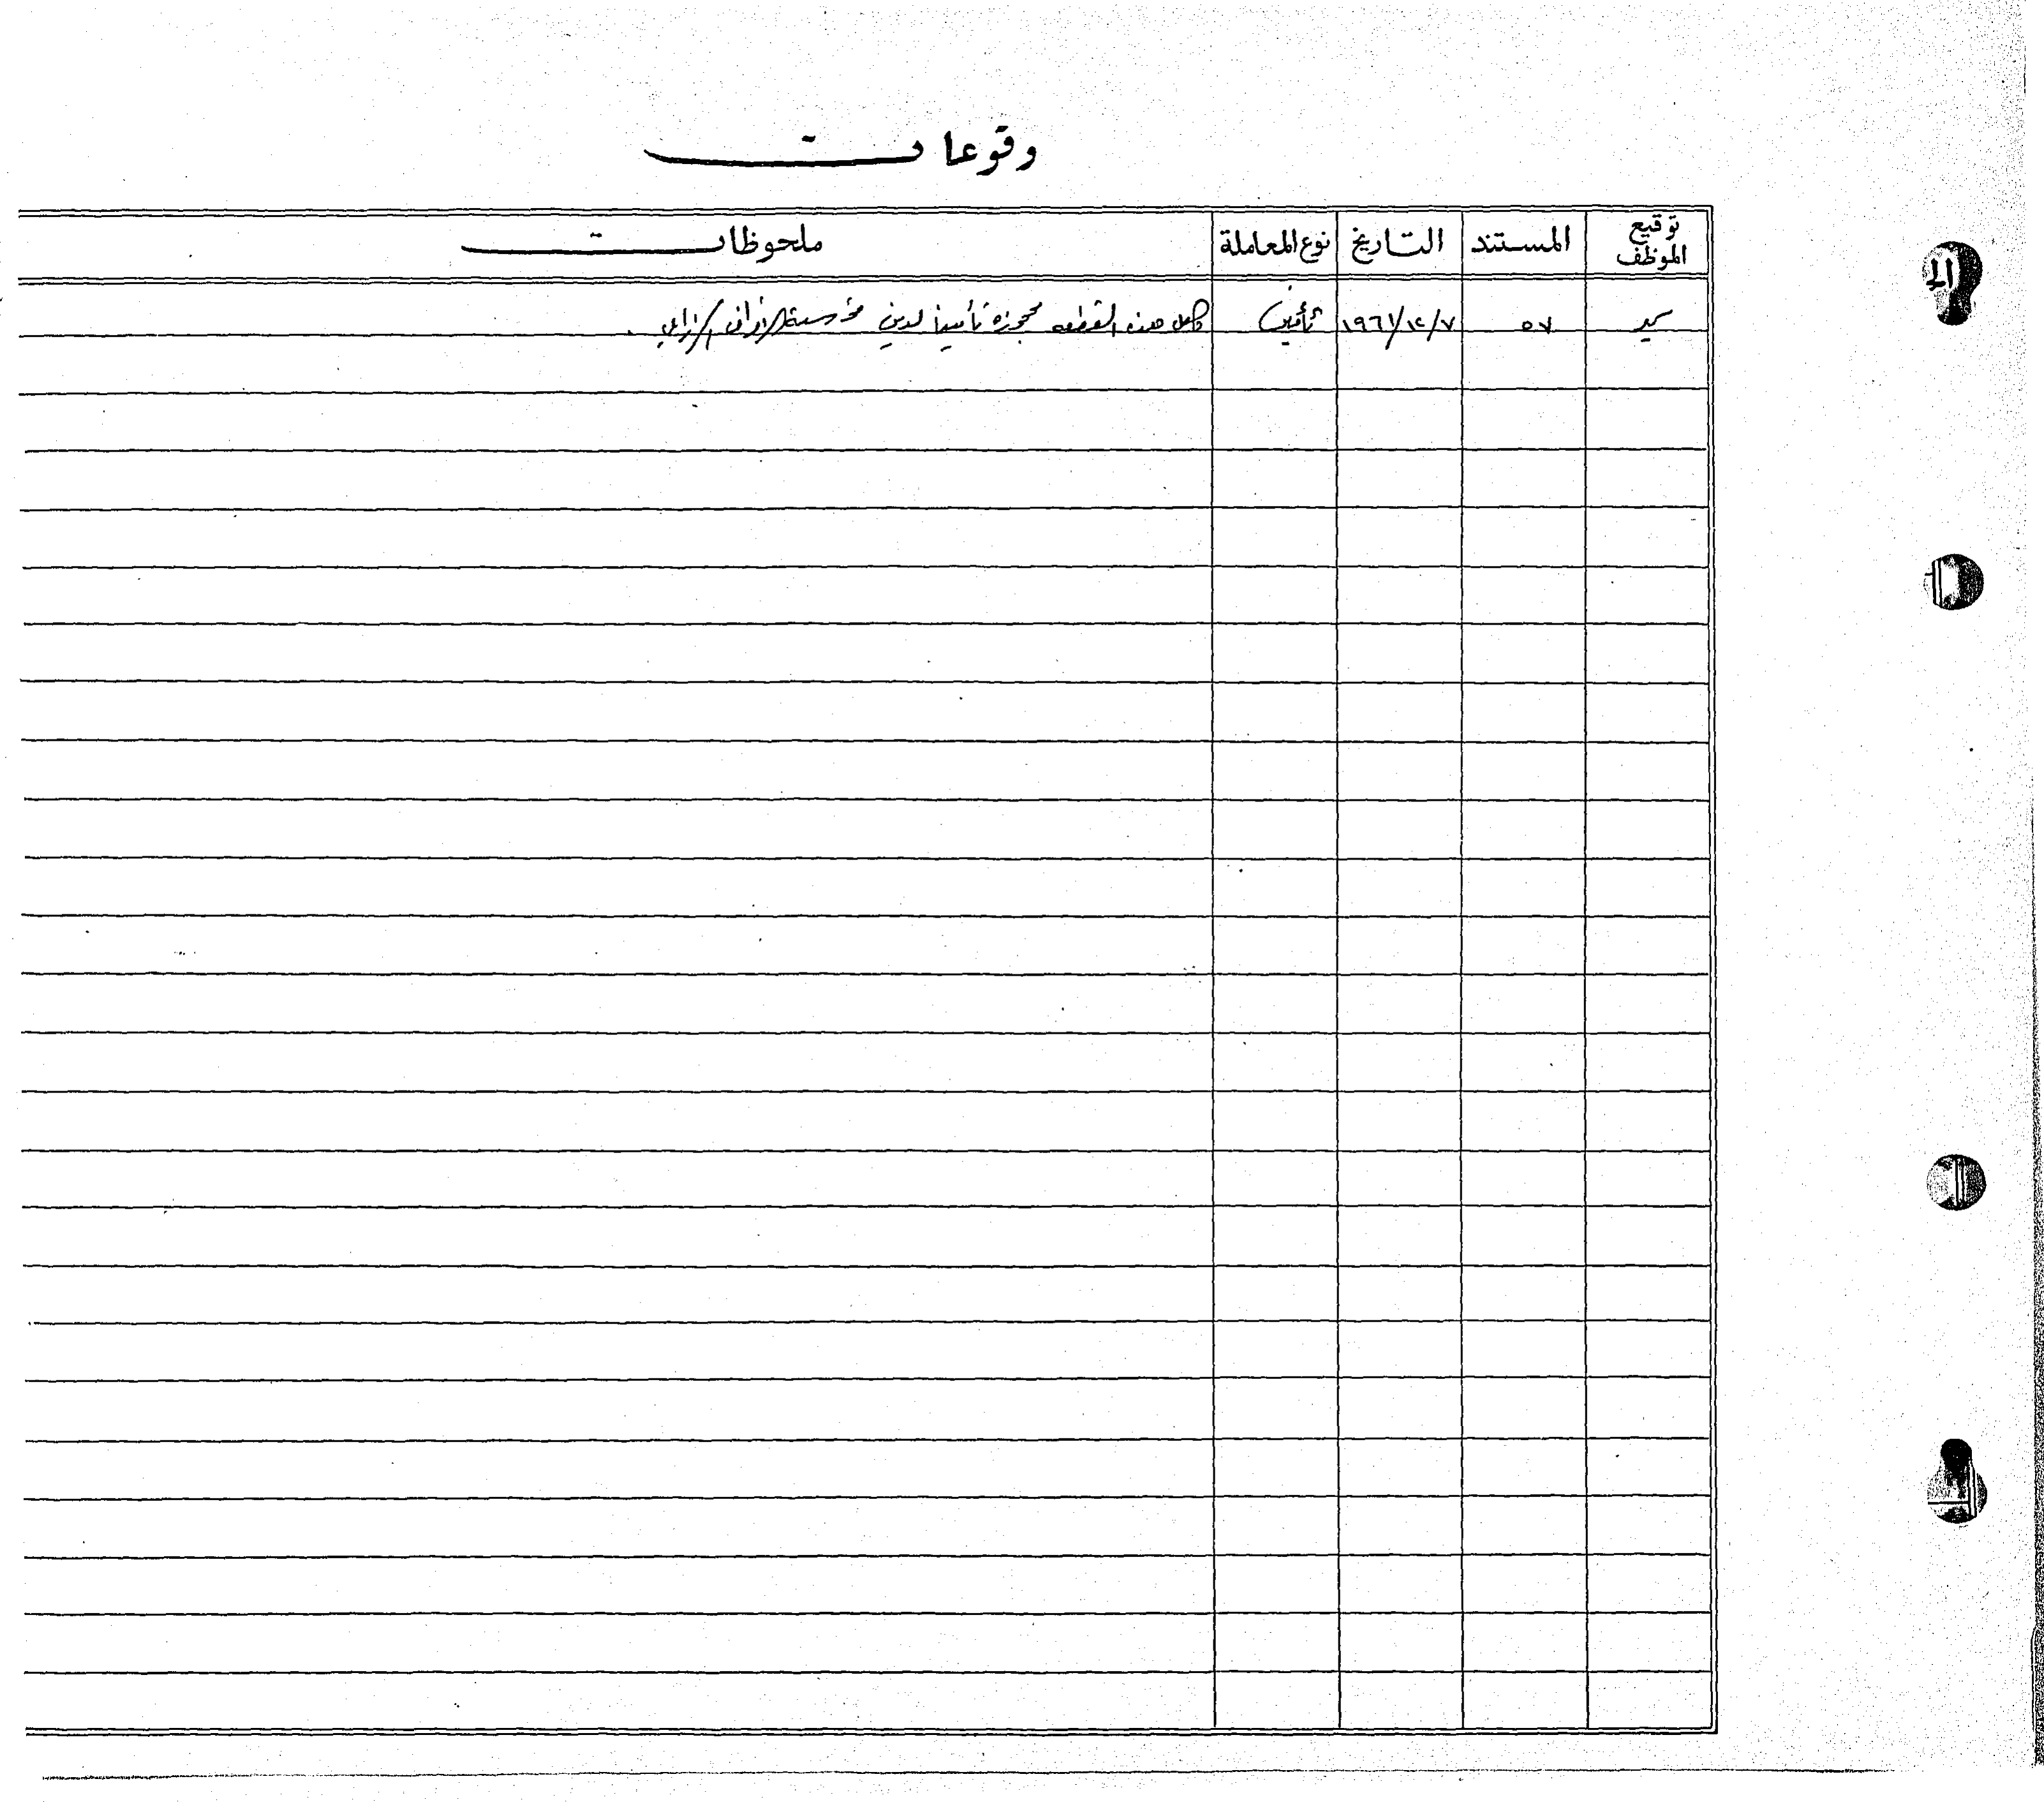 وقوعات
توقيع الموظف المستند التاريخ نوع المعاملة ملحوظات
٥٧ ١٩٦١/١٢/٧ تأمين كامل هذه القطعه محجوزه تأميناً لدين مؤسسة الاقراض الزراعي .